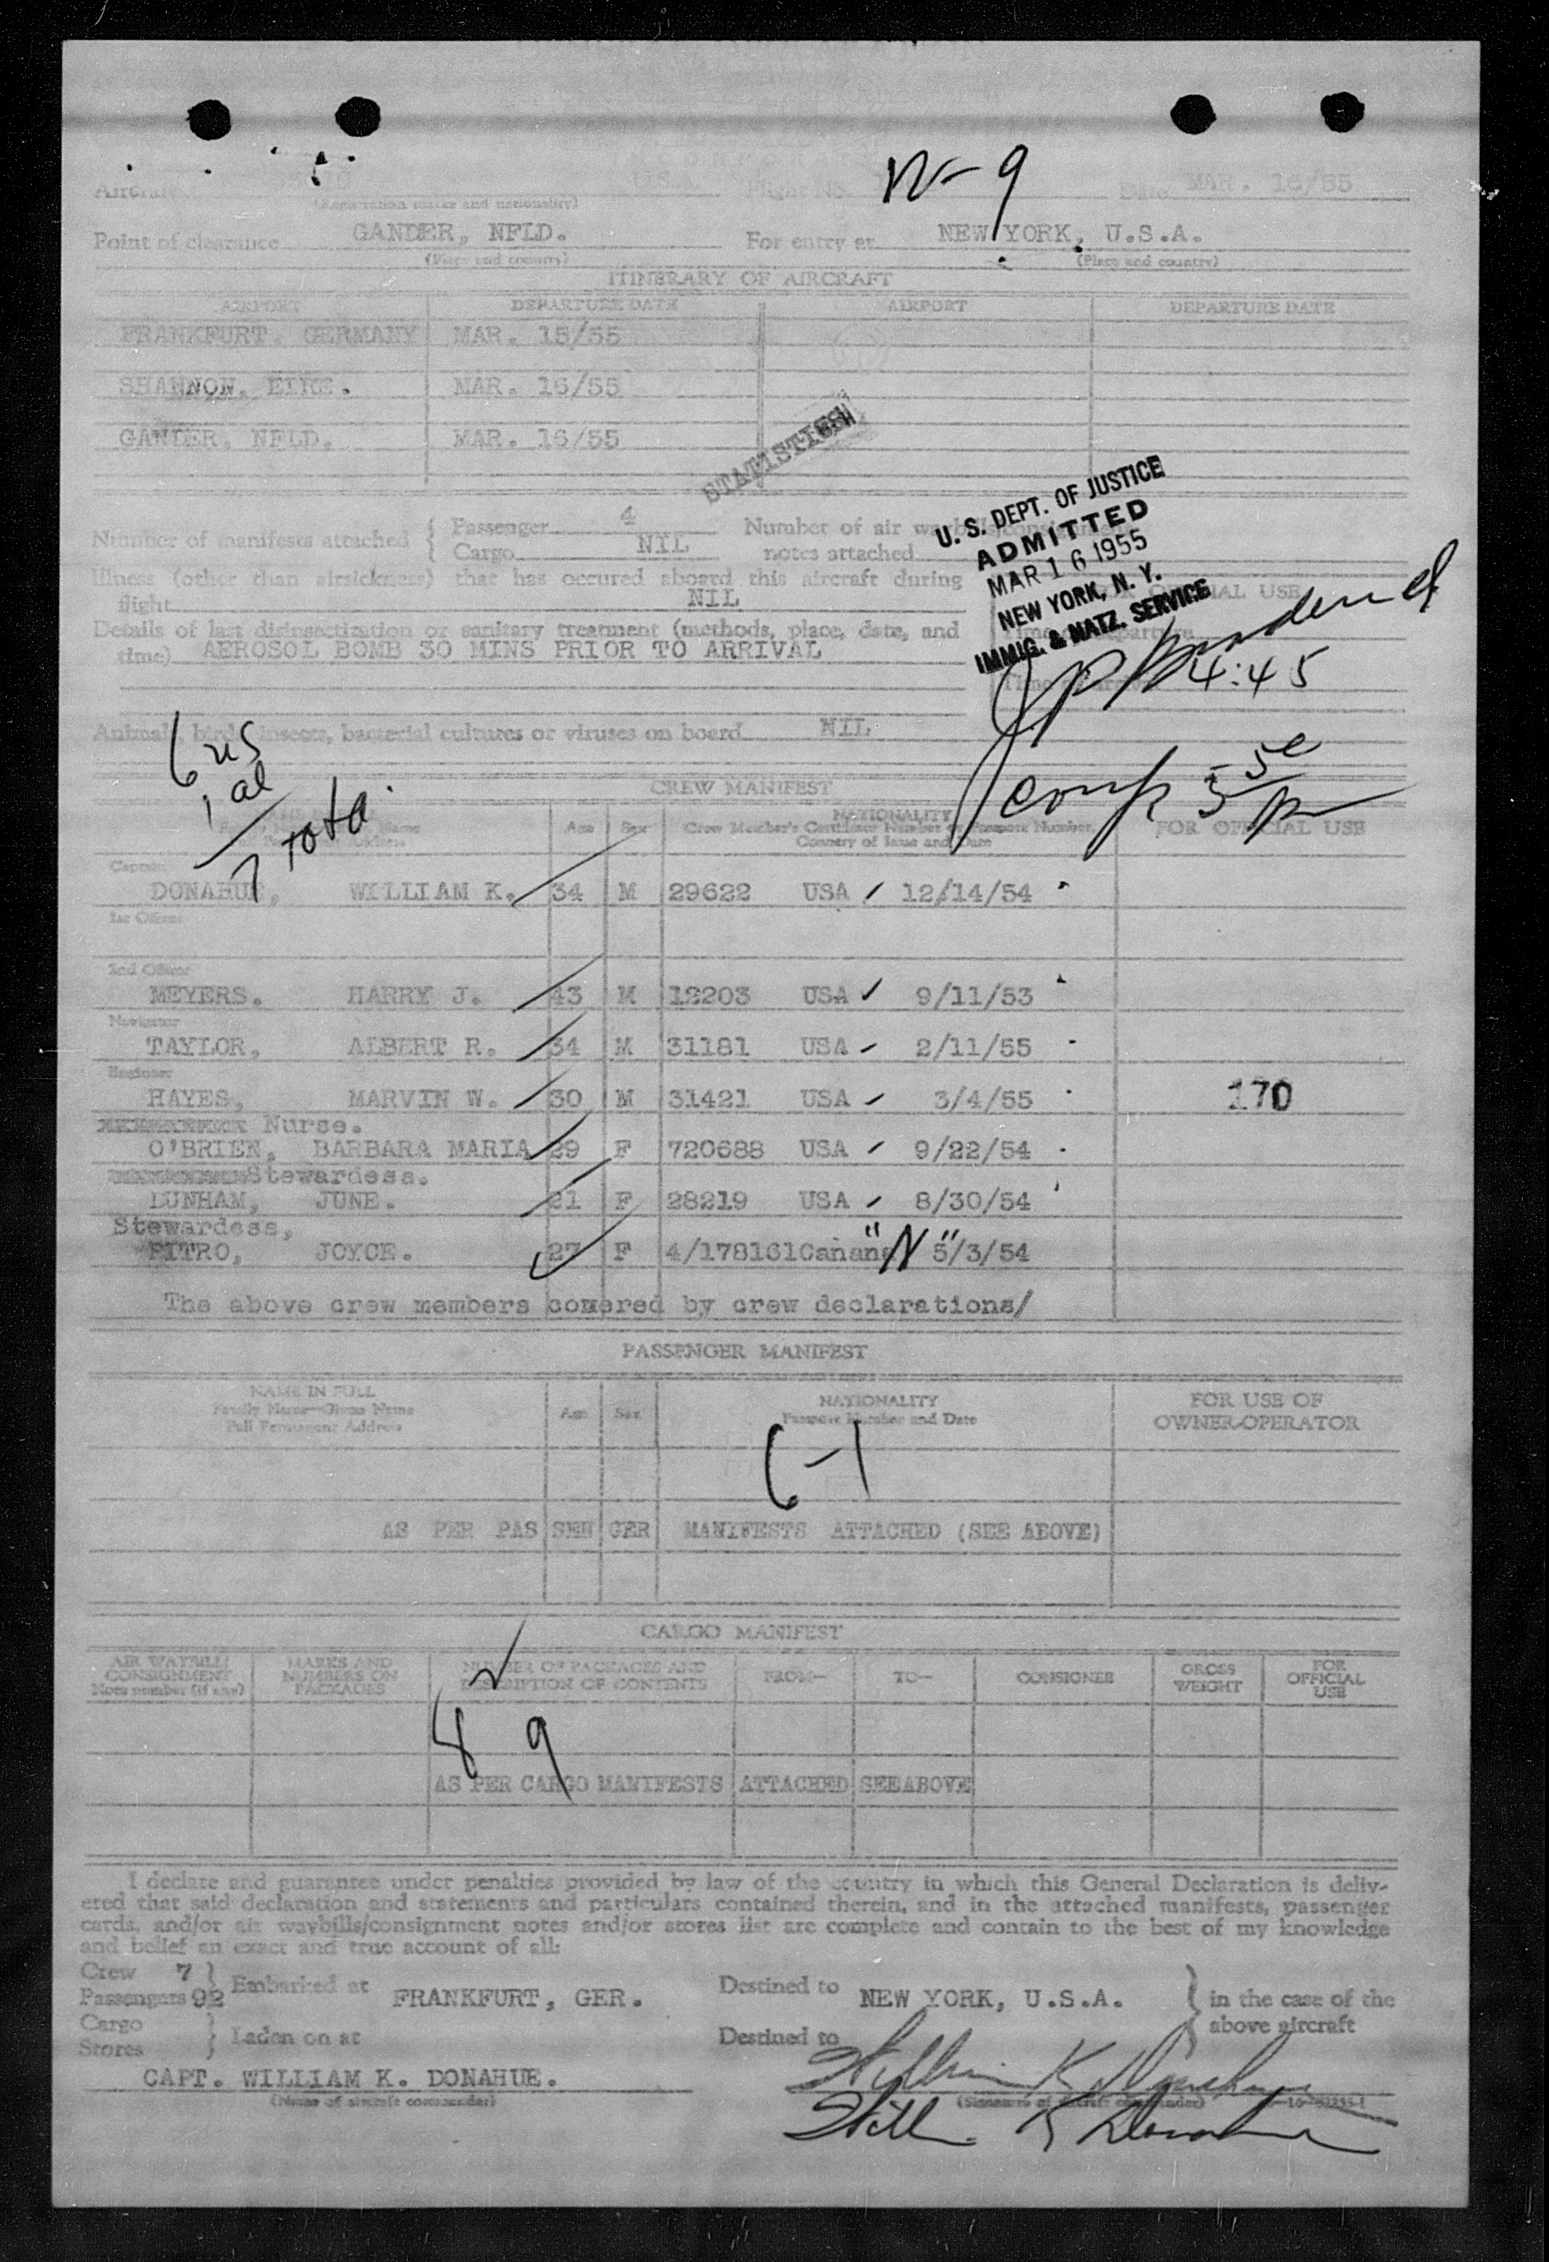 W-9
Aircraft U.S.A. Flight No. Date MAR. 16/55
(Registration marks and nationality)
Point of clearance GANDER, NFLD. For entry at NEW YORK, U.S.A.
(Place and country) (Place and country)
ITINERARY OF AIRCRAFT
AIRPORT DEPARTURE DATE AIRPORT DEPARTURE DATE
FRANKFURT. GERMANY MAR. 15/55
SHANNON, EIRE. MAR. 16/55
GANDER, NFLD. MAR. 16/55
STATISTICS
U. S. DEPT. OF JUSTICE
ADMITTED
MAR 16 1955
NEW YORK, N. Y.
IMMIG. & NATZ. SERVICE
Number of manifests attached { Passenger 4 Number of air waybills/consignment
Cargo NIL notes attached
Illness (other than airsickness) that has occured aboard this aircraft during
flight NIL
FOR OFFICIAL USE
Details of last disinsectization or sanitary treatment (methods, place, date, and
time) AEROSOL BOMB 30 MINS PRIOR TO ARRIVAL
4:45
Animals, birds, insects, bacterial cultures or viruses on board NIL
6 us
1 al
7 total
CREW MANIFEST
Age Sex NATIONALITY
Crew Member's Certificate Number or Passport Number, FOR OFFICIAL USE
Country of Issue and Date
Captain
DONAHUE, WILLIAM K. 34 M 29622 USA 12/14/54
1st Officer
2nd Officer
MEYERS. HARRY J. 43 M 12203 USA 9/11/53
Navigator
TAYLOR, ALBERT R. 34 M 31181 USA 2/11/55
Engineer
HAYES, MARVIN W. 30 M 31421 USA 3/4/55 170
Nurse.
O'BRIEN, BARBARA MARIA 29 F 720688 USA 9/22/54
Stewardess.
DUNHAM, JUNE. 21 F 28219 USA 8/30/54
Stewardess,
PITRO, JOYCE. 27 F 4/178161 Canana "N" 5/3/54
The above crew members comered by crew declarations/
PASSENGER MANIFEST
NAME IN FULL
Family Name—Given Name
Full Permanent Address
Age Sex NATIONALITY
Passport Number and Date FOR USE OF
OWNER-OPERATOR
6-1
AS PER PAS SEN GER MANIFESTS ATTACHED (SEE ABOVE)
CARGO MANIFEST
AIR WAYBILL/
CONSIGNMENT
Note number (if any)
MARKS AND
NUMBERS ON
PACKAGES
NUMBER OF PACKAGES AND
DESCRIPTION OF CONTENTS
FROM— TO— CONSIGNEE GROSS
WEIGHT
FOR
OFFICIAL
USE
8 9
AS PER CARGO MANIFESTS ATTACHED SEE ABOVE
I declare and guarantee under penalties provided by law of the country in which this General Declaration is deliv-
ered that said declaration and statements and particulars contained therein, and in the attached manifests, passenger
cards, and/or air waybills/consignment notes and/or stores list are complete and contain to the best of my knowledge
and belief an exact and true account of all:
Crew 7 } Embarked at FRANKFURT, GER. Destined to NEW YORK, U.S.A. } in the case of the
Passengers 92
Cargo } Laden on at Destined to above aircraft
Stores
CAPT. WILLIAM K. DONAHUE. William K Donahue
(Name of aircraft commander) (Signature of aircraft commander)
Will K Donahue